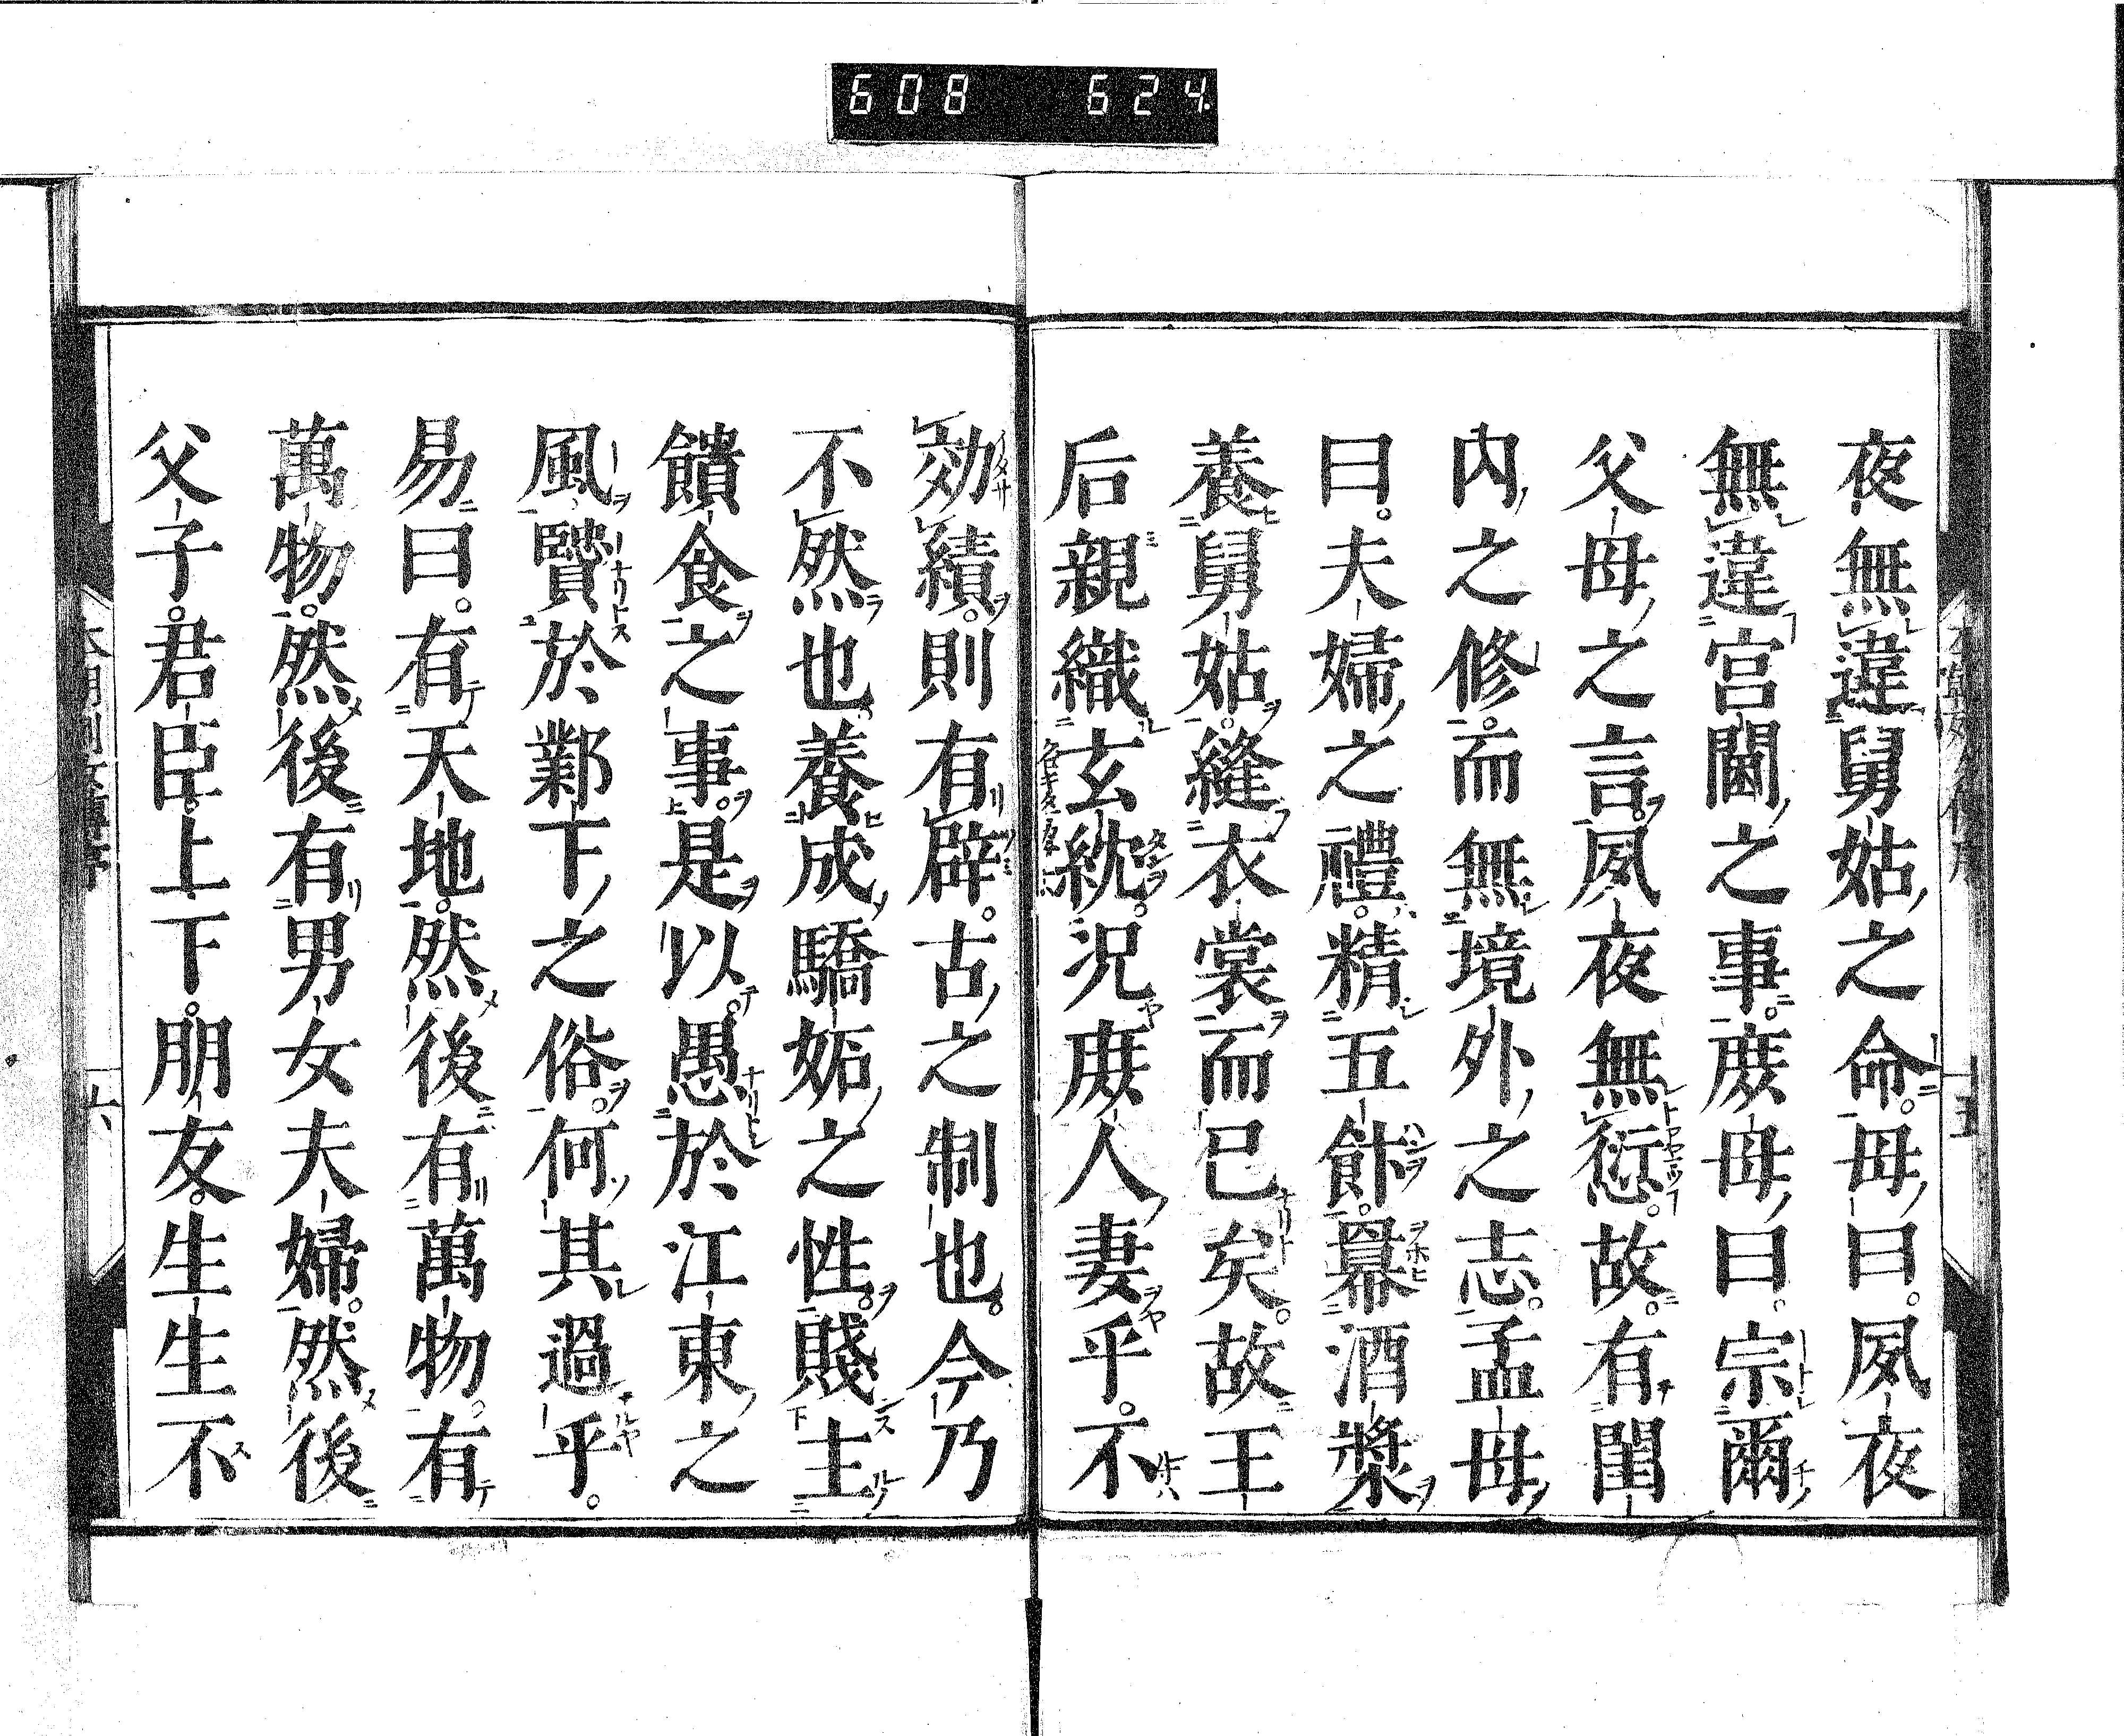 608 624.
夜無違舅姑之命。毋曰。夙夜
無違宮闕之事。庶母曰。宗爾
父母之言。夙夜無愆。故有閨
内之修。而無境外之志。孟母
曰。夫婦之禮。精五飰。冪酒漿
養舅姑。縫衣裳而已矣。故王
后親織玄紞。況庶人妻乎。不
効績。則有辟。古之制也。今乃
不然也。養成驕妬之性。賤主
饋食之事。是以愚於江東之
風。賢於鄴下之俗。何其過乎。
易曰。有天地。然後有萬物。有
萬物。然後有男女夫婦。然後
父子。君臣。上下。朋友。生生不